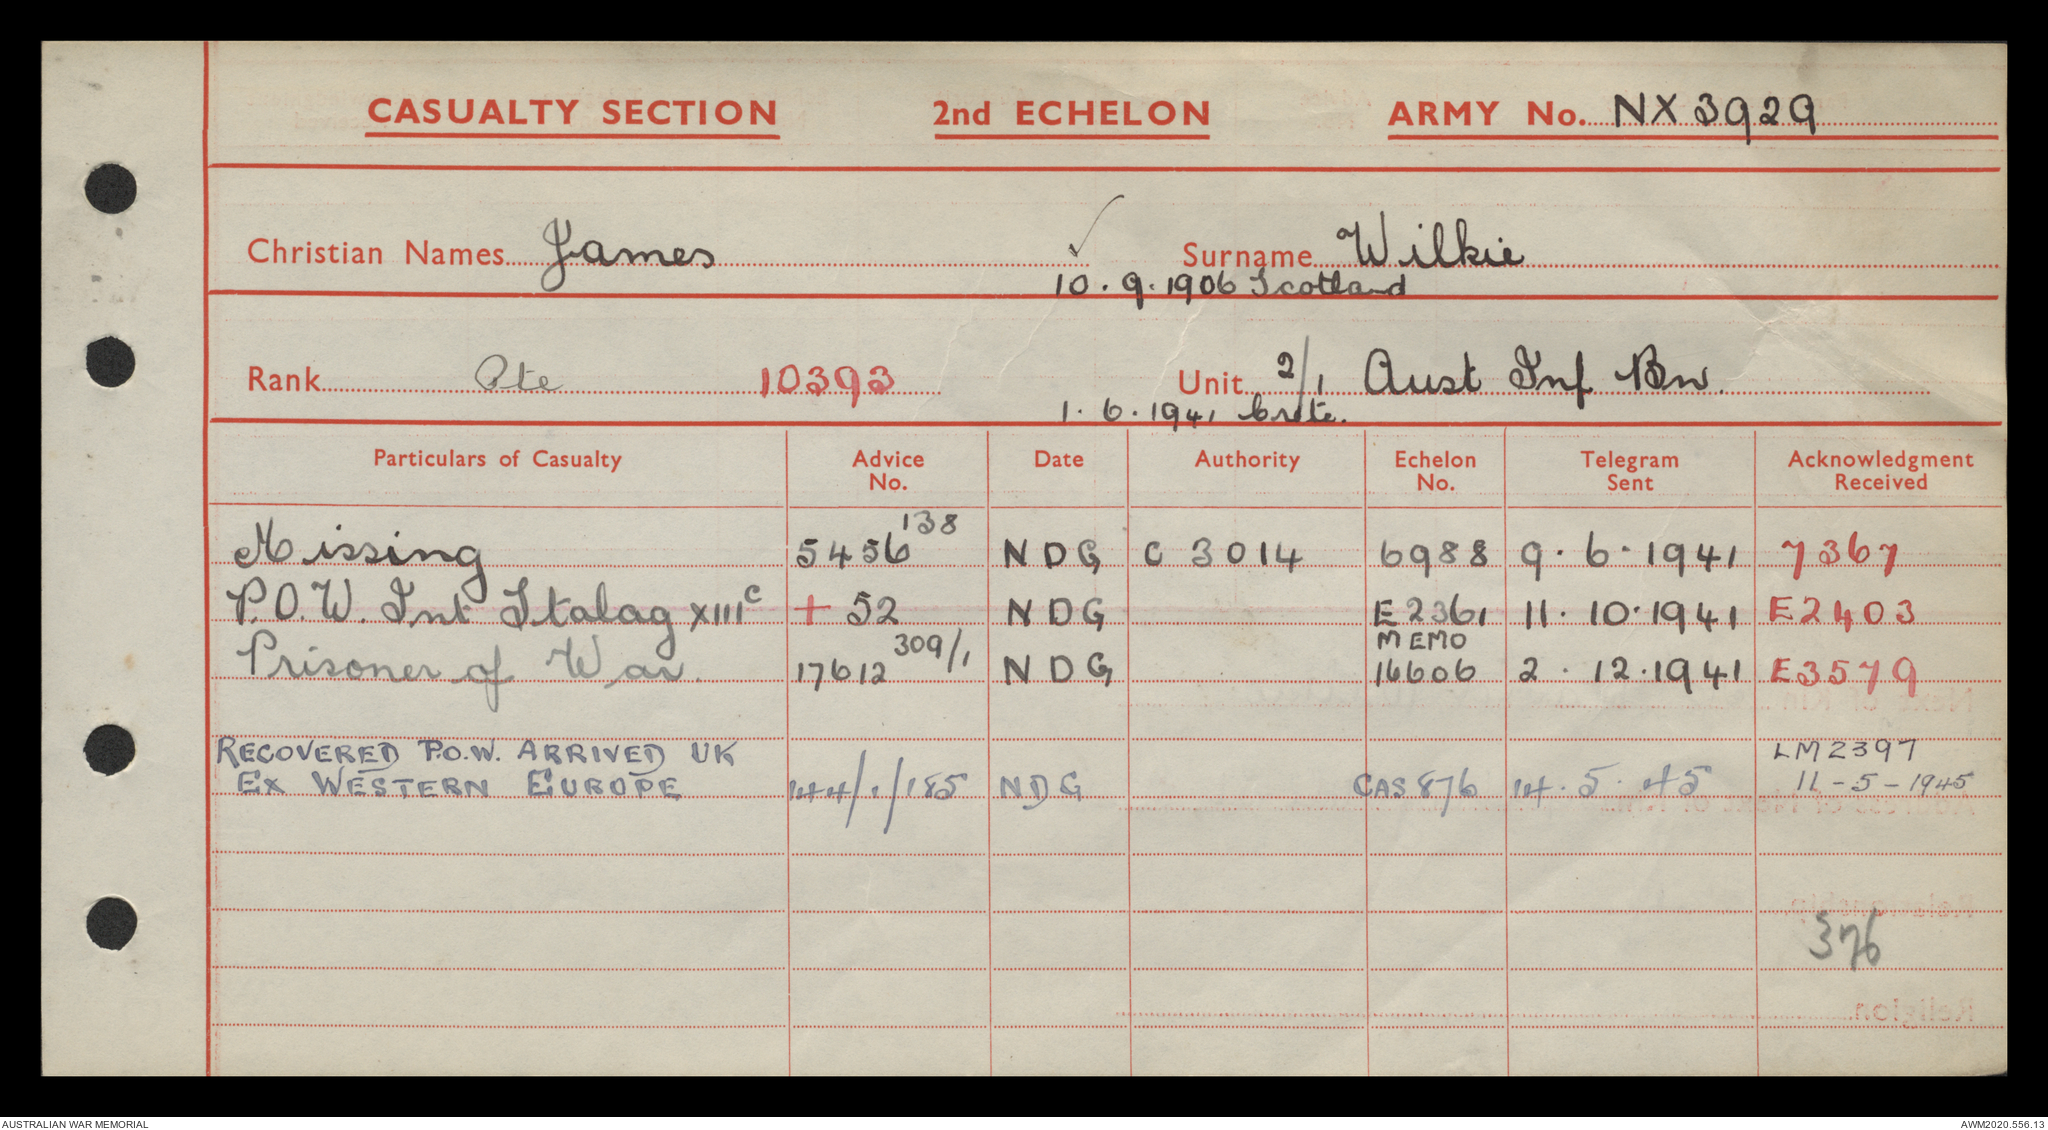 CASUALTY SECTION 2nd ECHELON ARMY No. NX3929
Christian Names James ✓ Surname Wilkie
10.9.1906 Scotland
Rank Pte 10393 Unit 2/1 Aust Inf Bn.
1.6.1941 Crete.
Particulars of Casualty Advice No. Date Authority Echelon No. Telegram Sent Acknowledgment Received
Missing 5456 138 NDG C 3014 6988 9.6.1941 7367
P.O.W. Int Stalag XIII C + 52 NDG E2361 11.10.1941 E2403
Prisoner of War. 17612 309/1 NDG MEMO 16606 2.12.1941 E3579
RECOVERED P.O.W. ARRIVED UK LM2397
EX WESTERN EUROPE 144/1/185 NDG CAS876 14.5.45 11-5-1945
376
AUSTRALIAN WAR MEMORIAL AWM2020.556.13